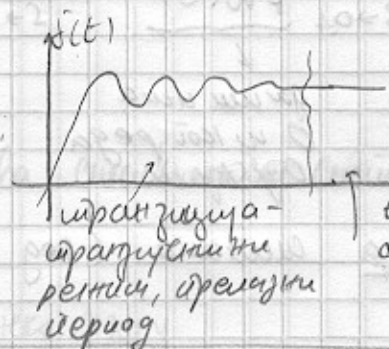 f(t)
транзиција-
транзијентни
режим, прелазни
период
t